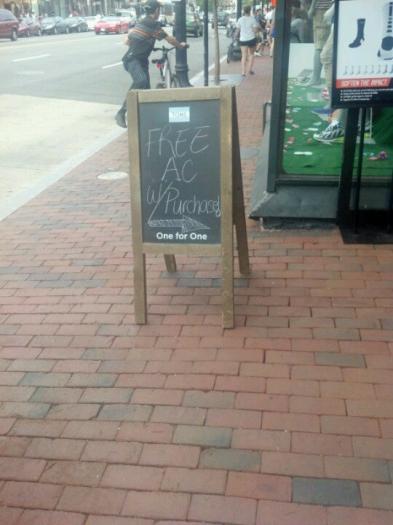 TOMS
FREE
AC
w/ Purchase!
One for One
SOFTEN THE IMPACT